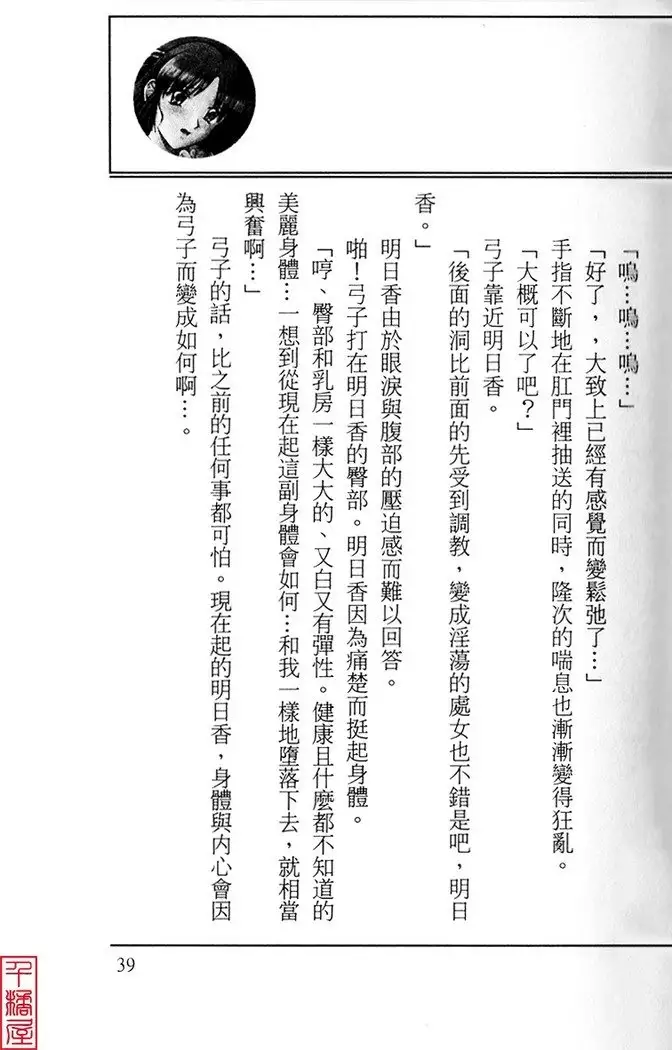 「嗚…嗚…嗚…」
「好了,,大致上已經有感覺而變鬆弛了…」
手指不斷地在肛門裡抽送的同時,隆次的喘息也漸漸變得狂亂。
「大概可以了吧?」
弓子靠近明日香。
「後面的洞比前面的先受到調教,變成淫蕩的處女也不錯是吧,明日
香。」
明日香由於眼淚與腹部的壓迫感而難以回答。
啪!弓子打在明日香的臀部。明日香因為痛楚而挺起身體。
「哼、臀部和乳房一樣大大的、又白又有彈性。健康且什麼都不知道的
美麗身體…一想到從現在起這副身體會如何…和我一樣地墮落下去,就相當
興奮啊…」
弓子的話,比之前的任何事都可怕。現在起的明日香,身體與內心會因
為弓子而變成如何啊…。
39
千橘屋